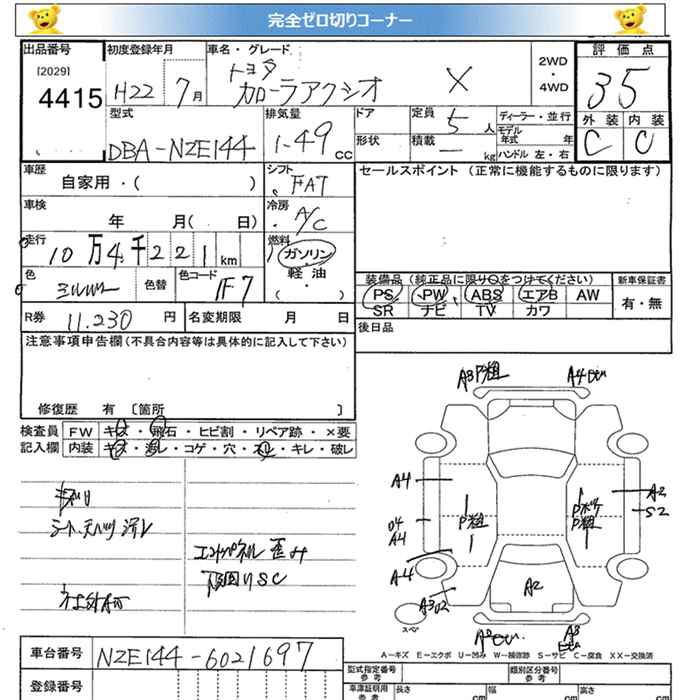 完全ゼロ切りコーナー
出品番号 初度登録年月 車名・グレード
[2029] 4415 H22 7月 トヨタ カローラアクシオ X
2WD・4WD
評価点
35
外装 内装
C C
型式 排気量 ドア 定員 5人 ディーラー・並行
DBA-NZE144 1-49cc 形状 積載 — kg モデル年式 年
ハンドル 左・右
車歴 シフト セールスポイント (正常に機能するものに限ります)
自家用・( ) FAT
車検 冷房
年 月( 日) A/C
走行 燃料
10万4千221km ガソリン
軽油
・
( )
色 色替 色コード 1F7
装備品(純正品に限り○をつけてください) 新車保証書
PS PW ABS エアB AW 有・無
SR ナビ TV カワ
R券 11.230円 名変期限 月 日 後日品
注意事項申告欄(不具合内容等は具体的に記入して下さい)
修復歴 有〔箇所 〕
検査員 FW キズ・飛石・ヒビ割・リペア跡・×要
記入欄 内装 キズ・汚レ・コゲ・穴・ネレ・キレ・破レ
シート、天ハリ 汚レ
エンドパネル 歪み
下回りSC
A3 P粗 A4
A4
P粗
P粗
A2
S2
U4
A4
A4
A2
A3U2
スペア
A3
A-キズ E-エクボ U-凹み W-補修跡 S-サビ C-腐食 XX-交換済
車台番号 NZE144-6021697
登録番号
型式指定番号 参考 類別区分番号 参考
車庫証明用 参考 長さ cm 幅 cm 高さ cm